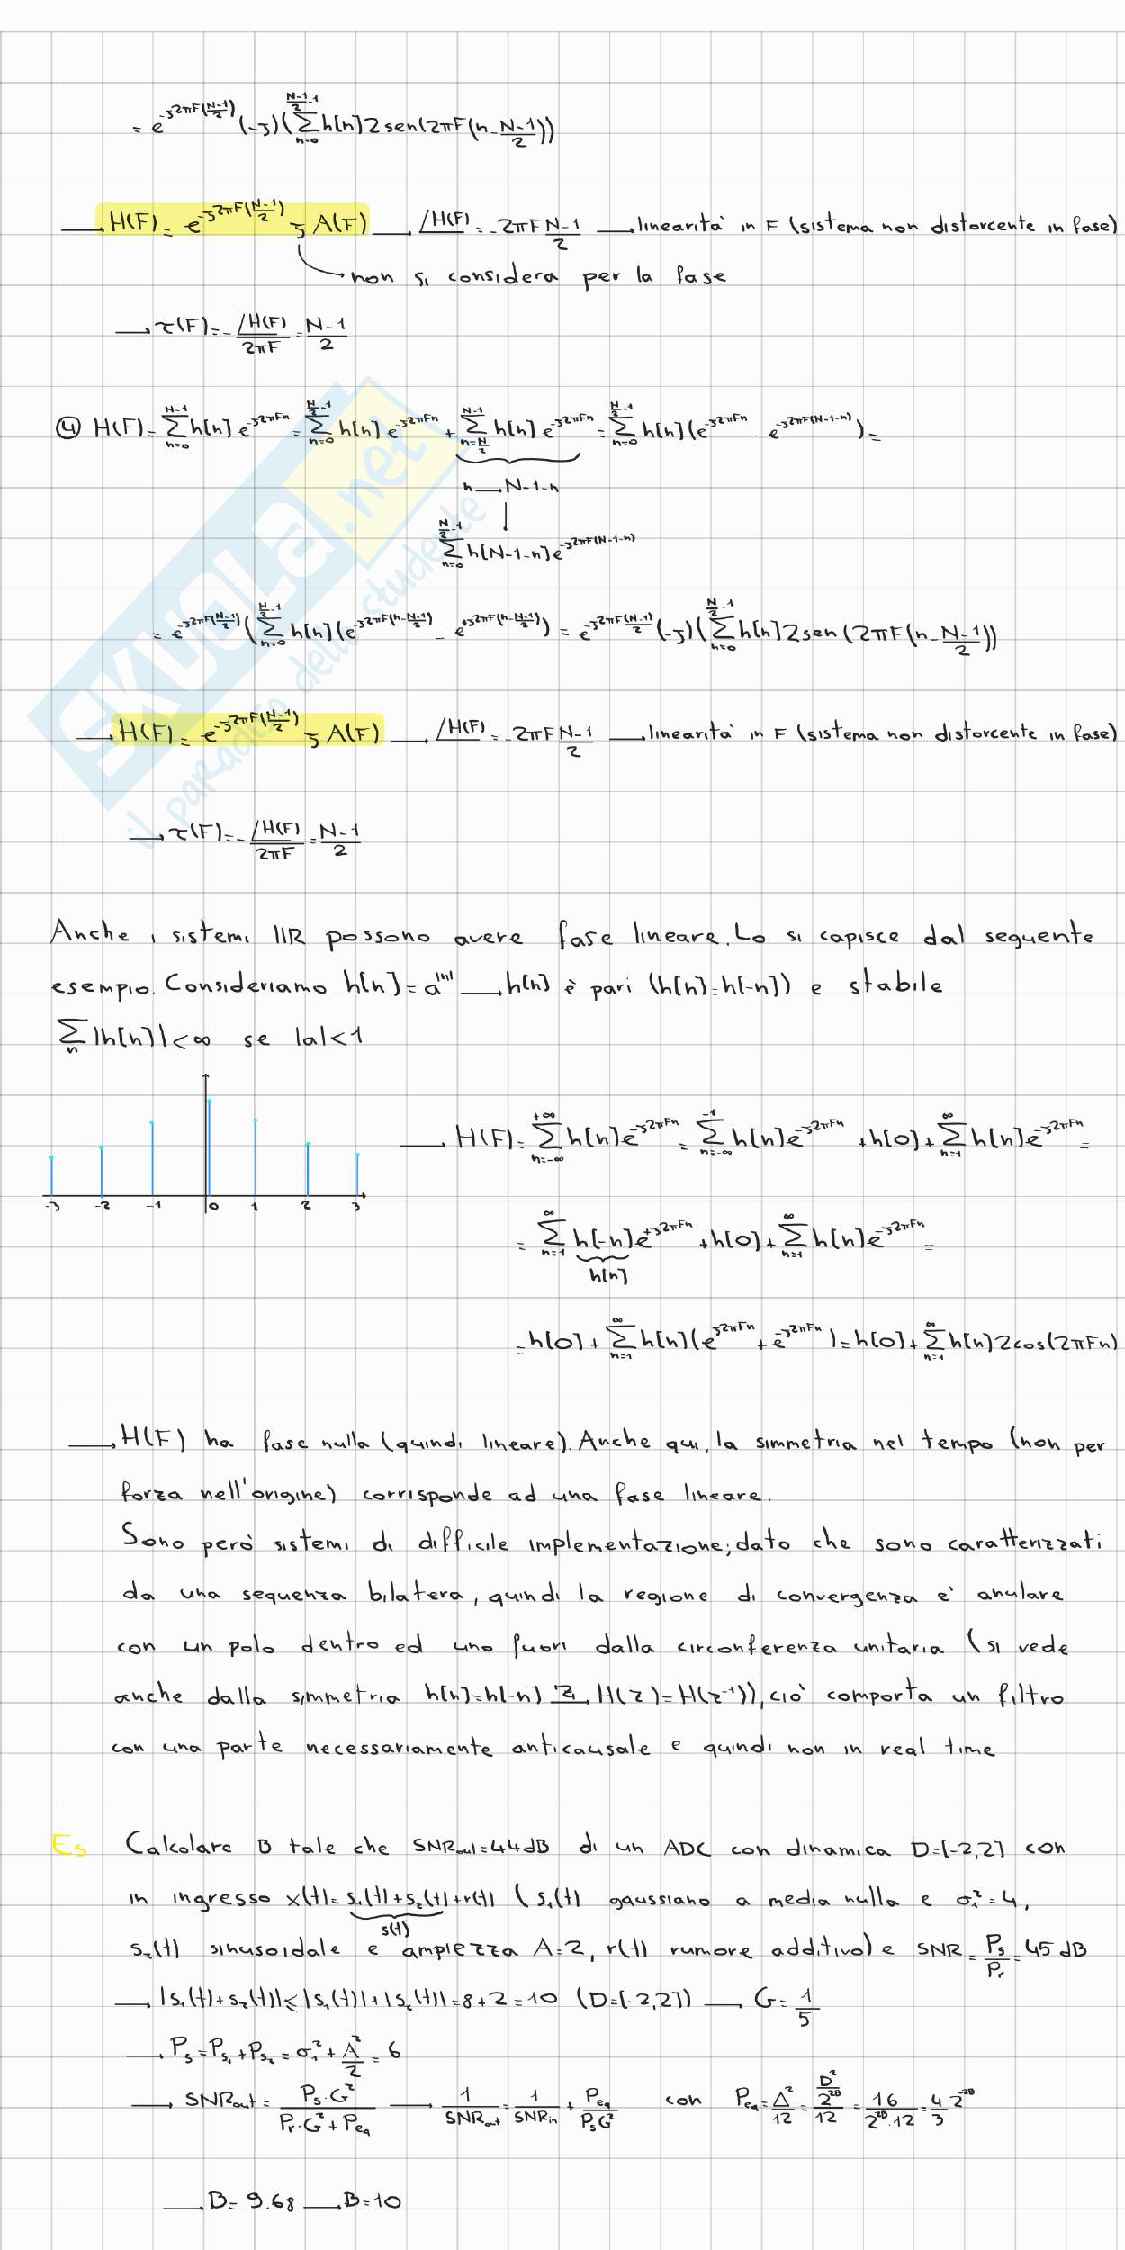 = e^{-j2πF(N-1/2)} (-j)(∑_{n=0}^{N-1/2 -1} h[n] 2 sen(2πF(n - N-1/2)))
→ H(F) = e^{-j2πF(N-1/2)} j A(F) → ∠H(F) = -2πF N-1/2 → linearità in F (sistema non distorcente in fase)
non si considera per la fase
→ τ(F) = - ∠H(F)/2πF = N-1/2
④ H(F) = ∑_{n=0}^{N-1} h[n] e^{-j2πFn} = ∑_{n=0}^{N/2-1} h[n] e^{-j2πFn} + ∑_{n=N/2}^{N-1} h[n] e^{-j2πFn} = ∑_{n=0}^{N/2-1} h[n] (e^{-j2πFn} e^{-j2πF(N-1-n)}) =
n → N-1-n
∑_{n=0}^{N/2-1} h[N-1-n] e^{-j2πF(N-1-n)}
= e^{-j2πF(N-1/2)} (∑_{n=0}^{N/2-1} h[n] (e^{-j2πF(n-N-1/2)} - e^{+j2πF(n-N-1/2)}) = e^{-j2πF(N-1/2)} (-j)(∑_{n=0}^{N/2-1} h[n] 2 sen(2πF(n - N-1/2))
→ H(F) = e^{-j2πF(N-1/2)} j A(F) → ∠H(F) = -2πF N-1/2 → linearità in F (sistema non distorcente in fase)
→ τ(F) = - ∠H(F)/2πF = N-1/2
Anche i sistemi IIR possono avere fase lineare. Lo si capisce dal seguente
esempio. Consideriamo h[n] = a^{|n|} → h[n] è pari (h[n] = h[-n]) e stabile
∑_n |h[n]| < ∞ se |a| < 1
→ H(F) = ∑_{n=-∞}^{+∞} h[n] e^{-j2πFn} = ∑_{n=-∞}^{-1} h[n] e^{-j2πFn} + h[0] + ∑_{n=1}^{∞} h[n] e^{-j2πFn} =
-3 -2 -1 0 1 2 3
= ∑_{n=1}^{∞} h[-n] e^{+j2πFn} + h[0] + ∑_{n=1}^{∞} h[n] e^{-j2πFn} =
h[n]
= h[0] + ∑_{n=1}^{∞} h[n] (e^{j2πFn} + e^{-j2πFn}) = h[0] + ∑_{n=1}^{∞} h[n] 2cos(2πFn)
→ H(F) ha fase nulla (quindi lineare). Anche qui, la simmetria nel tempo (non per
forza nell'origine) corrisponde ad una fase lineare.
Sono però sistemi di difficile implementazione; dato che sono caratterizzati
da una sequenza bilatera, quindi la regione di convergenza è anulare
con un polo dentro ed uno fuori dalla circonferenza unitaria (si vede
anche dalla simmetria h[n] = h[-n] Z→ H(z) = H(z^{-1})), ciò comporta un filtro
con una parte necessariamente anticausale e quindi non in real time
Es Calcolare B tale che SNR_out = 44 dB di un ADC con dinamica D = [-2,2] con
in ingresso x(t) = s₁(t) + s₂(t) + r(t) (s₁(t) gaussiano a media nulla e σ₁² = 4,
s(t)
s₂(t) sinusoidale e ampiezza A = 2, r(t) rumore additivo) e SNR = P_s/P_r = 45 dB
→ |s₁(t) + s₂(t)| ≤ |s₁(t)| + |s₂(t)| = 8 + 2 = 10 (D = [-2,2]) → G = 1/5
→ P_s = P_{s₁} + P_{s₂} = σ₁² + A²/2 = 6
→ SNR_out = P_s·G² / P_r·G² + P_eq → 1/SNR_out = 1/SNR_in + P_eq/P_sG² con P_eq = Δ²/12 = D²/2^{2B}/12 = 16/2^{2B}·12 = 4/3 2^{-2B}
→ B = 9.68 → B = 10
SKUOLA.net
il paradiso dello studente